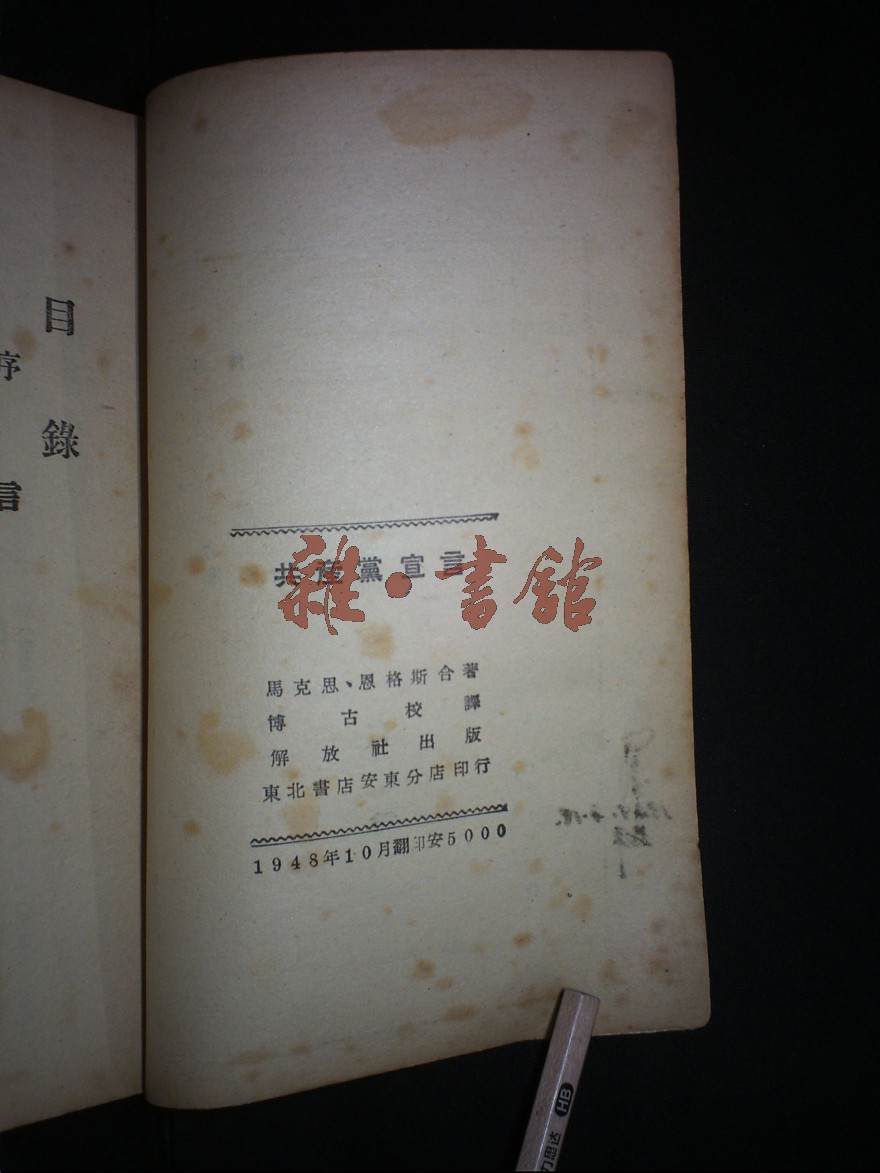 目錄
序言
共產黨宣言
雜·書館
馬克思、恩格斯合著
博古校譯
解放社出版
東北書店安東分店印行
1948年10月翻印安5000
HB